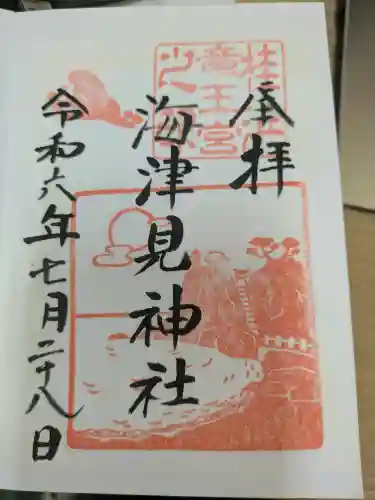 奉拝
海津見神社
令和六年七月二十八日
桂浜
竜王宮